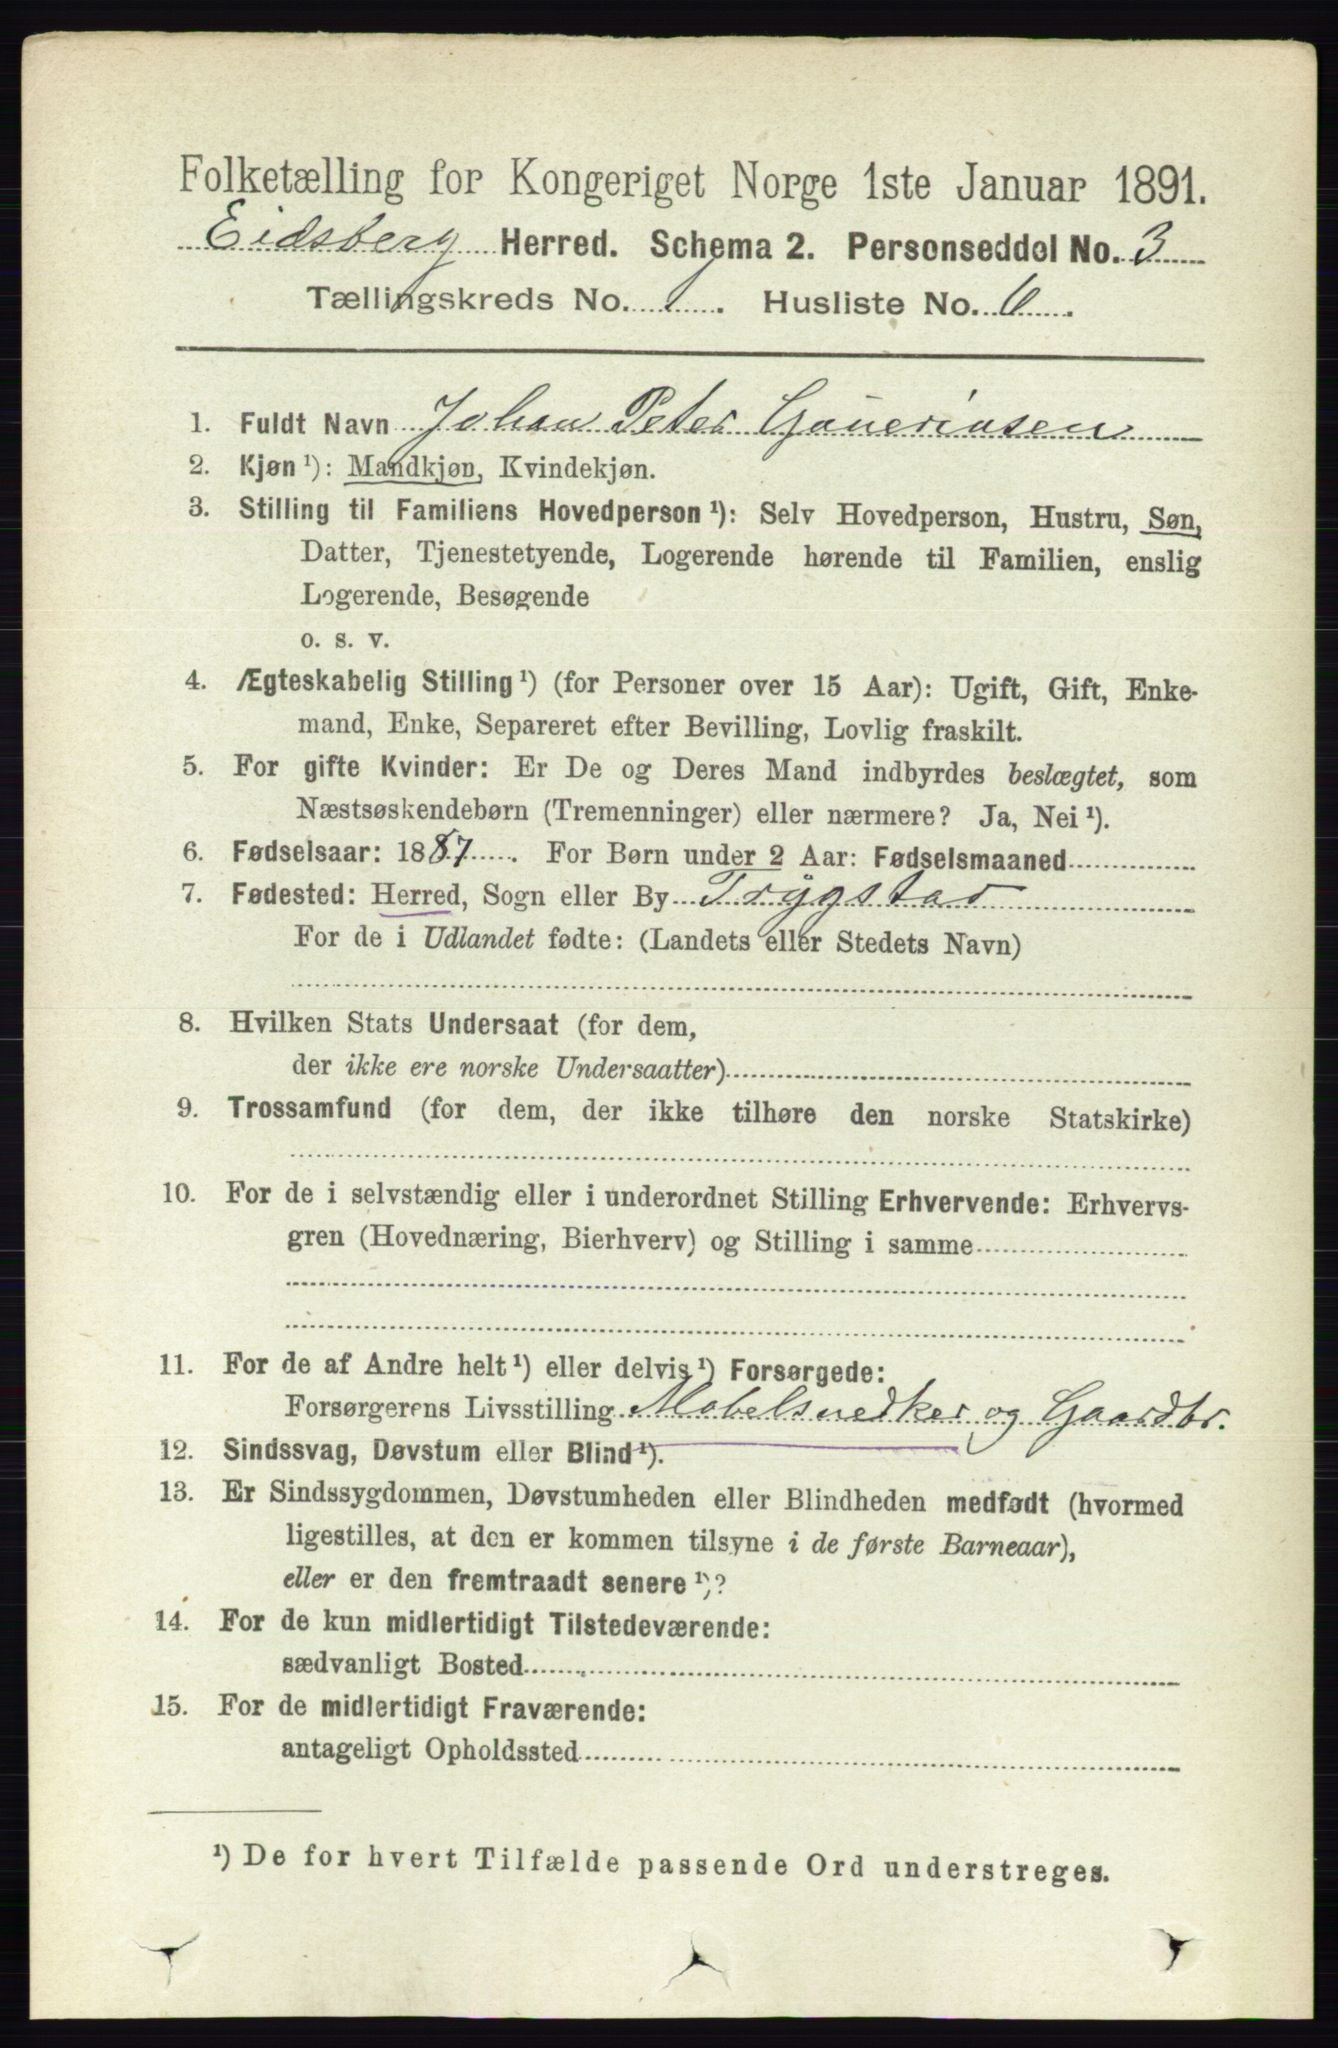 Folketælling for Kongeriget Norge 1ste Januar 1891.
Eidsberg Herred. Schema 2. Personseddel No. 3
Tællingskreds No. 1. Husliste No. 6.
1. Fuldt Navn Johan Peter
2. Kjøn ¹): Mandkjøn, Kvindekjøn.
3. Stilling til Familiens Hovedperson ¹): Selv Hovedperson, Hustru, Søn,
Datter, Tjenestetyende, Logerende hørende til Familien, enslig
Logerende, Besøgende
o. s. v.
4. Ægteskabelig Stilling ¹) (for Personer over 15 Aar): Ugift, Gift, Enke-
mand, Enke, Separeret efter Bevilling, Lovlig fraskilt.
5. For gifte Kvinder: Er De og Deres Mand indbyrdes beslægtet, som
Næstsøskendebørn (Tremenninger) eller nærmere? Ja, Nei ¹).
6. Fødselsaar: 1887. For Børn under 2 Aar: Fødselsmaaned
7. Fødested: Herred, Sogn eller By Trygstad
For de i Udlandet fødte: (Landets eller Stedets Navn)
8. Hvilken Stats Undersaat (for dem,
der ikke ere norske Undersaatter)
9. Trossamfund (for dem, der ikke tilhøre den norske Statskirke)
10. For de i selvstændig eller i underordnet Stilling Erhvervende: Erhvervs-
gren (Hovednæring, Bierhverv) og Stilling i samme
11. For de af Andre helt ¹) eller delvis ¹) Forsørgede:
Forsørgerens Livsstilling Møbelsnedker og Gaardbr.
12. Sindssvag, Døvstum eller Blind ¹).
13. Er Sindssygdommen, Døvstumheden eller Blindheden medfødt (hvormed
ligestilles, at den er kommen tilsyne i de første Barneaar),
eller er den fremtraadt senere ¹)?
14. For de kun midlertidigt Tilstedeværende:
sædvanligt Bosted
15. For de midlertidigt Fraværende:
antageligt Opholdssted
¹) De for hvert Tilfælde passende Ord understreges.